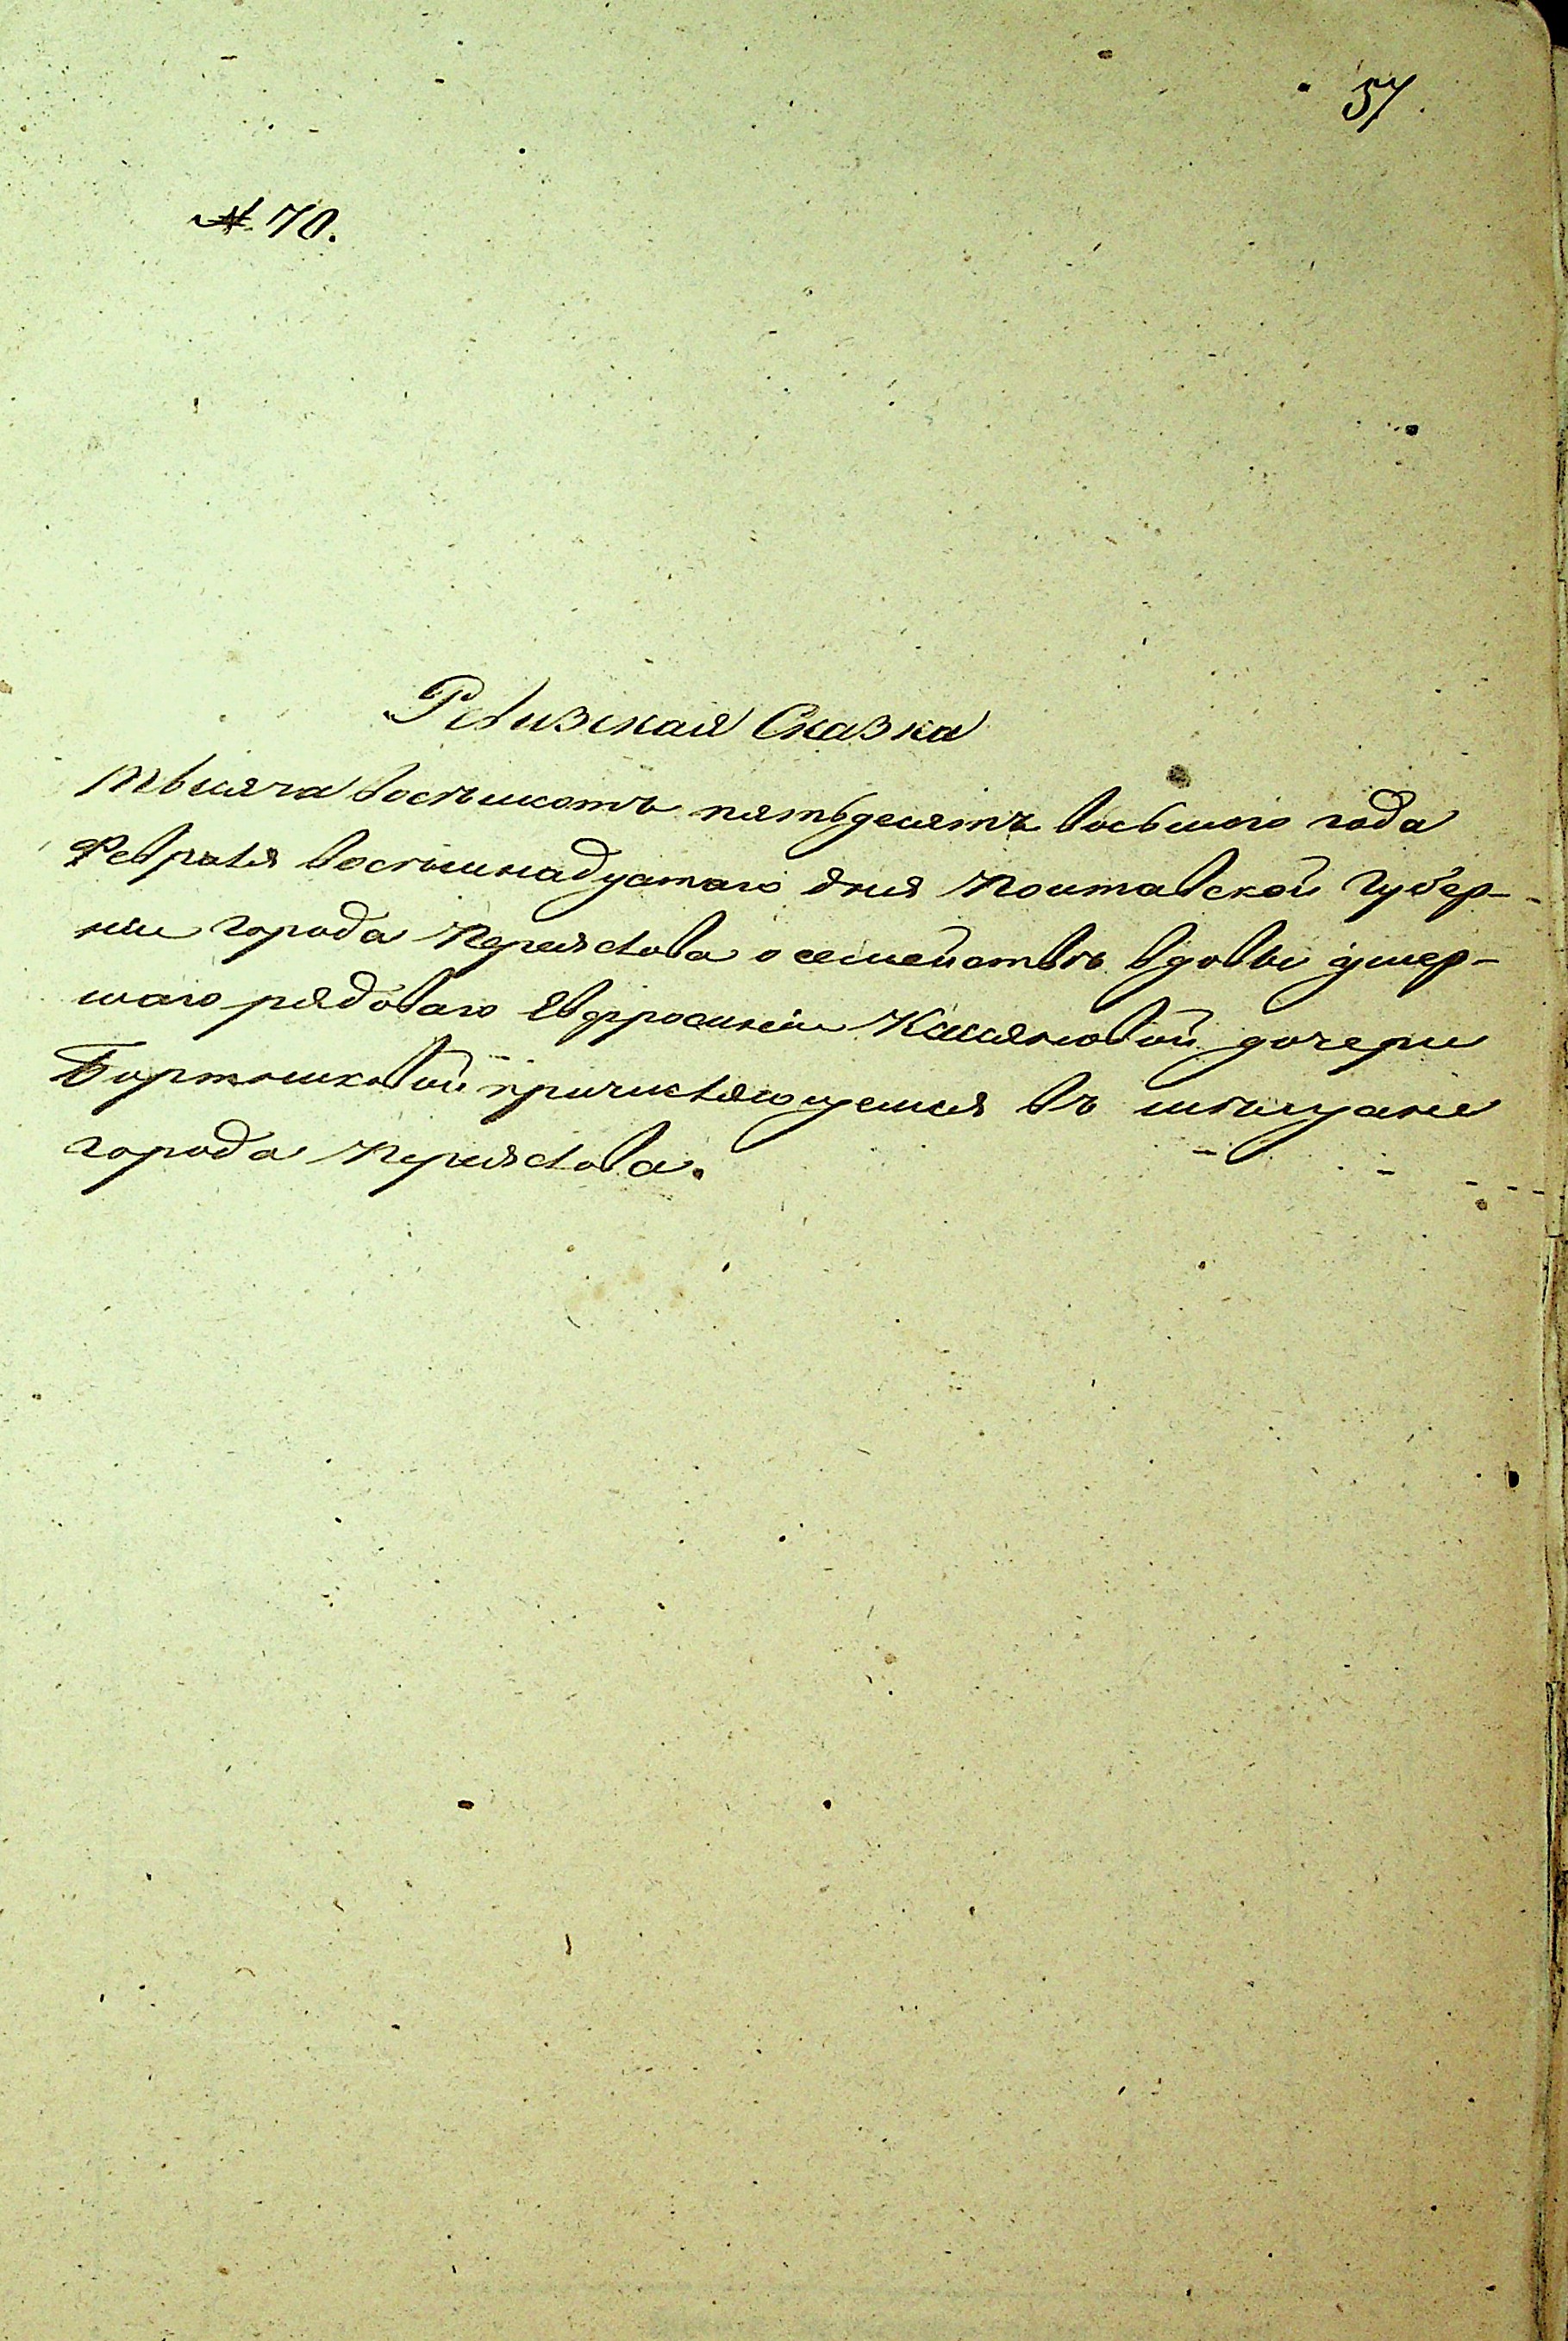 57
№ 70.
Ревизская Сказка
тысяча восемьсотъ пятьдесятъ восьмого года
Февраля восемьнадцатаго дня Полтавской Губер-
нии города Переяслова о семействѣ вдовы умер-
шаго рядоваго Евфросинии Касяновой дочери
причисляющемся въ мѣщане
города Переяслова.